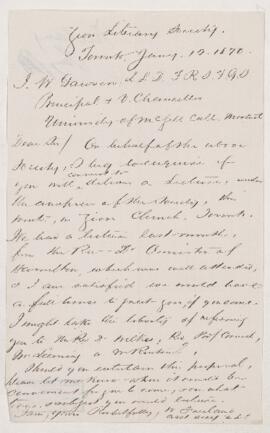 Zion Literary Society,
Toronto, Jany. 12. 1870.
J. W. Dawson L.L.D. F.R.S. F.G.S
Principal & V. Chancellor
University of McGill Coll. Montreal
Dear Sir/ On behalf of the above
Society, I beg to enquire if
you will consent to deliver a Lecture, under
the auspices of the Society, this
winter, in Zion Church, Toronto.
We had a lecture last month,
from the Rev. Dr. Ormiston of
Hamilton, which was well attended,
& I am satisfied we would have
a full house to greet you, if you come.
I might take the liberty of referring
you to the Rev Dr Wilkes, Rev Prof Cornish,
Mr Leeming &
Should you entertain the proposal,
please let me know when it would be
convenient for you to come, on what
subject you would lecture.
I am, yours Respectfully,